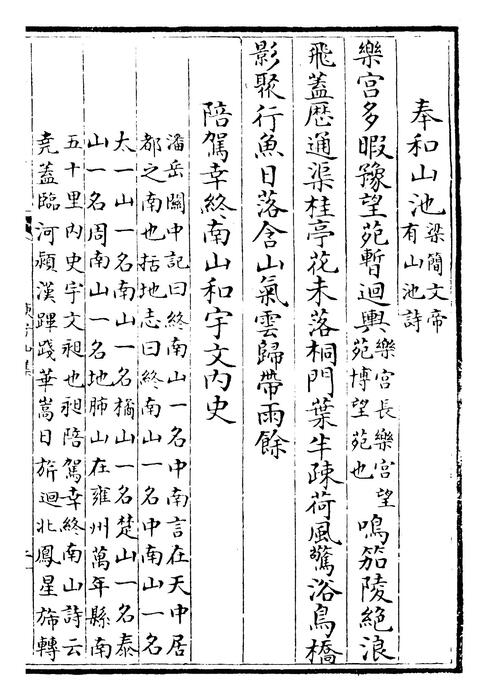 奉和山池梁簡文帝有山池詩
樂宮多暇豫望苑暫迴輿樂宮長樂宮望苑博望苑也鳴笳陵絕浪
飛蓋歷通渠桂亭花未落桐門葉半疎荷風驚浴鳥橋
影聚行魚日落含山氣雲歸帶雨餘
陪駕幸終南山和宇文内史
潘岳關中記曰終南山一名中南言在天中居
都之南也括地志曰終南山一名中南山一名
太一山一名南山一名橘山一名楚山一名泰
山一名周南山一名地肺山在雍州萬年縣南
五十里内史宇文昶也昶陪駕幸終南山詩云
堯蓋臨河潁漢蹕踐華嵩日旂迴北鳳星旆轉